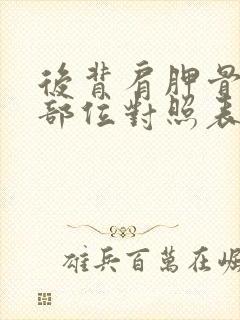 後背肩胛骨
部位對照表
雄兵百萬在崛